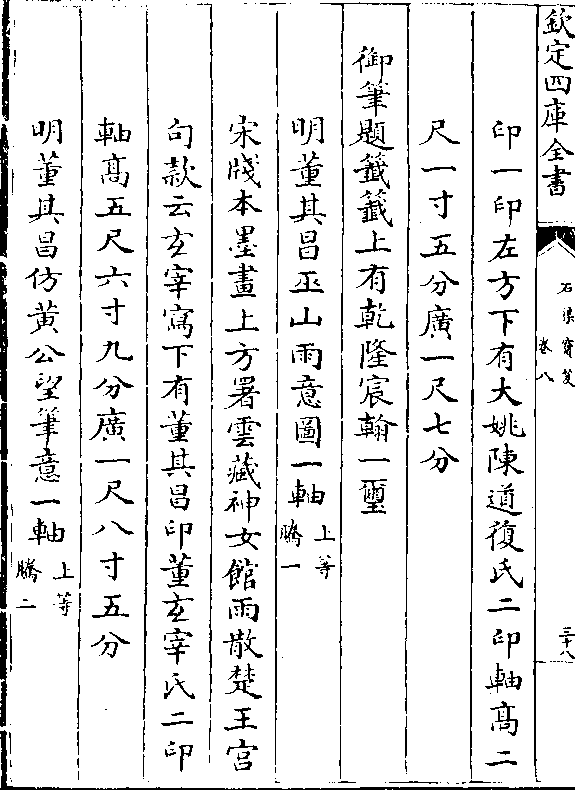 欽定四庫全書
石渠寶笈
卷八
三十八
印一印左方下有大姚陳道復氏二印軸髙二
尺一寸五分廣一尺七分
御筆題籤籤上有乾隆宸翰一璽
明董其昌巫山雨意圖一軸上等騰一
宋牋本墨畫上方署雲藏神女館雨散楚王宫
句款云玄宰寫下有董其昌印董玄宰氏二印
軸髙五尺六寸九分廣一尺八寸五分
明董其昌仿黄公望筆意一軸上等騰二